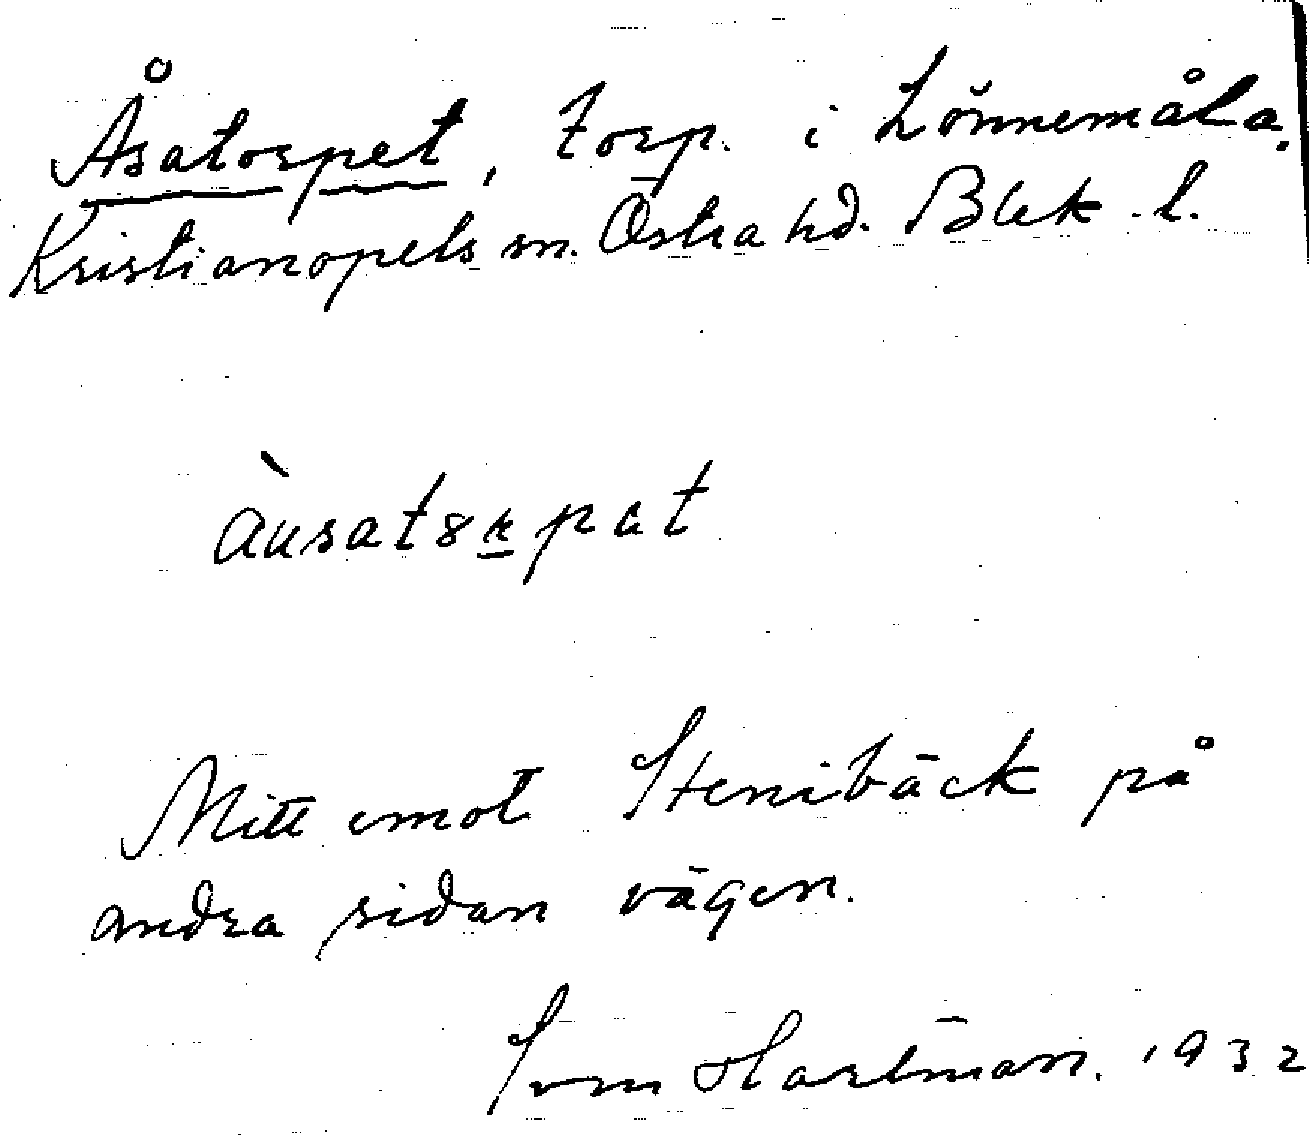 Åsatorpet, torp. i Lönnemåla.
Kristianopels sn. Östra hd. Blek. l.
àusatorpat
Mitt emot Stenibäck på
andra sidan vägen.
Sven Hartman. 1932